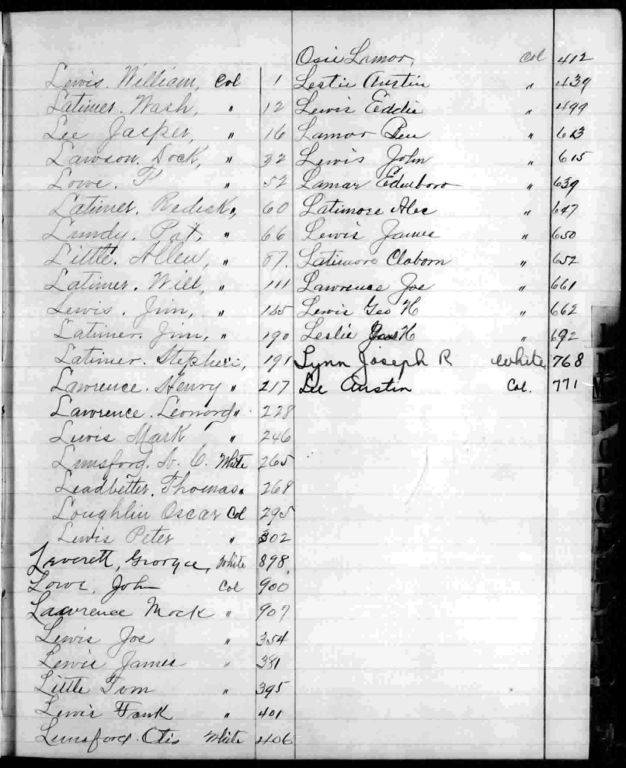 Lewis, William, Col 1
Latimer, Wash, " 12
Lee Jasper, " 16
Lawson, Dock, " 32
Lowe, " 52
Latimer, Redick, " 60
Lundy, Pat, " 66
Little, Allen, " 67.
Latimer, Will, " 111
Lewis, Jim, " 155
Latimer, Jim, " 190
Latimer, Stephen, 191
Lawrence, Henry " 217
Lawrence, Leonard " 228
Lewis Mark " 246
Lunsford, White 265
Leadbetter, Thomas " 268
Loughlin Oscar Col 295
Lewis Peter " 302
Leverett, George, White 898.
Lowe, John Col 900
Lawrence Mock " 907
Lewis Joe " 354
Lewis James " 381
Little Tom " 395
Lewis Frank " 401
Lunsford Otis White 406
Osie Lamor, Col 412
Leslie Austin " 439
Lewis Eddie " 499
Lamar Ben " 613
Lewis John " 615
Lamar Edinboro " 639
Latimore Alec " 647
Lewis James " 650
Latimore Claborn " 652
Lawrence Joe " 661
Lewis Geo H " 662
Leslie H " 692
Lynn Joseph R White 768
Lee Austin Col. 771